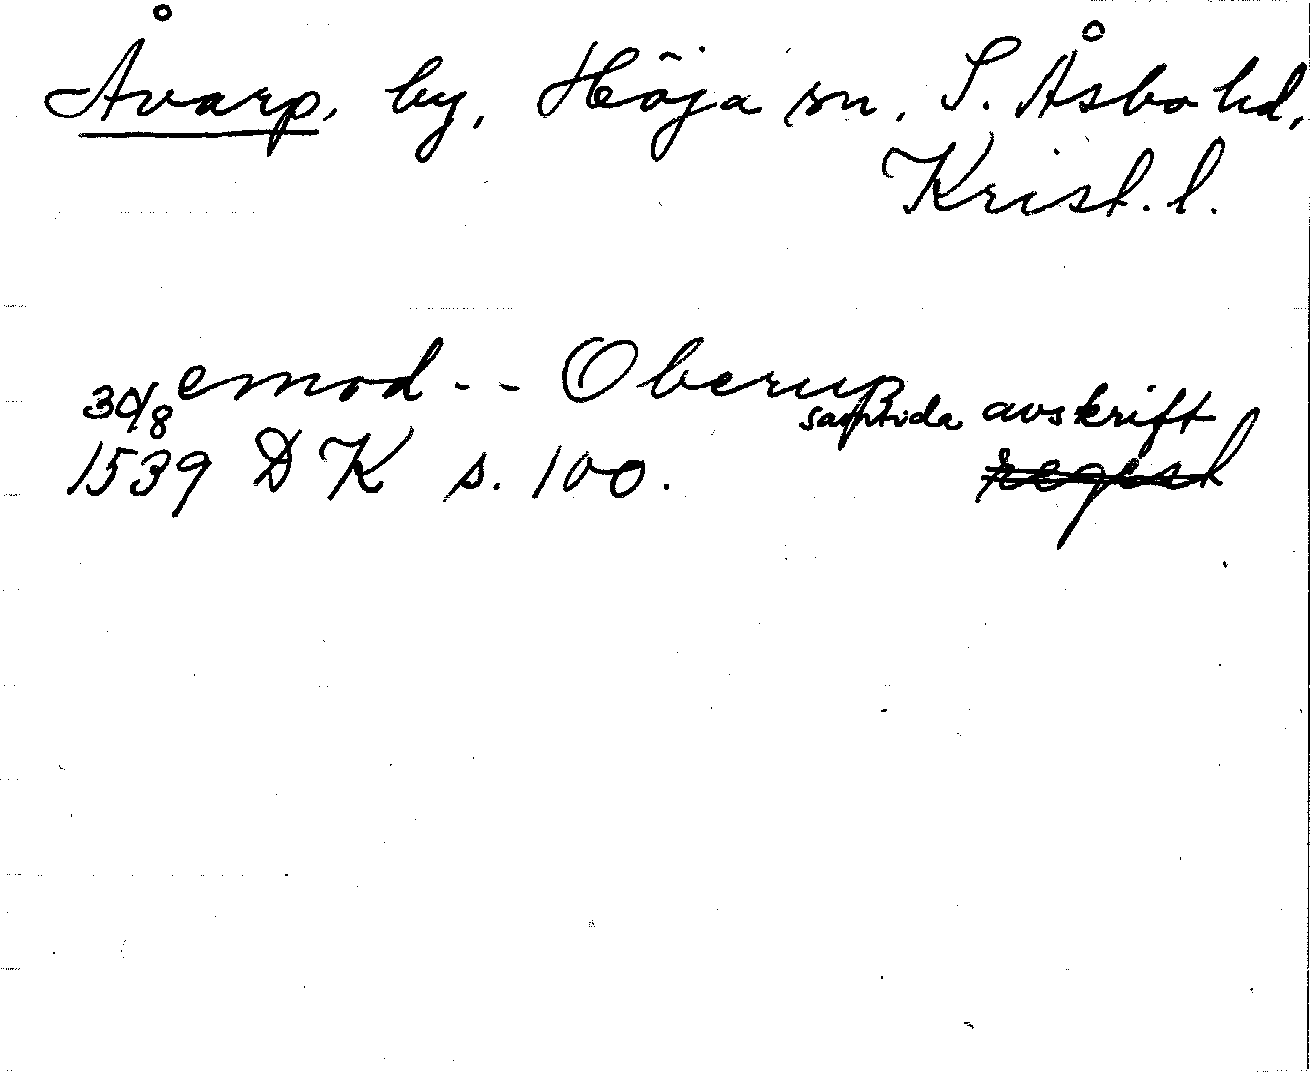 Åvarp, by, Höja sn, S. Åsbo hd,
Krist. l.
emod -- Oberup
30/8 samtida avskrift
1539 DK s. 100. regest